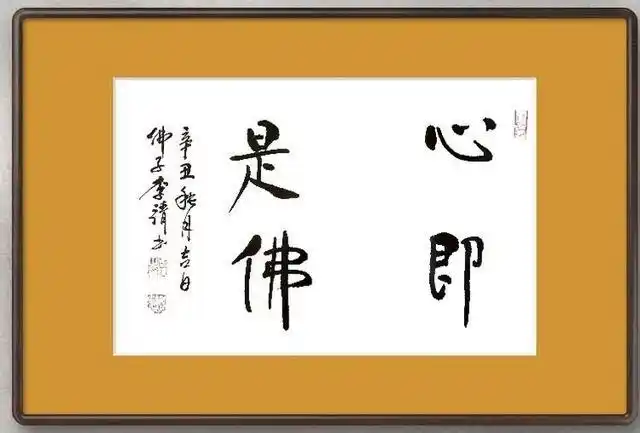 心即
是佛
辛丑秋月吉日
佛子李靖书